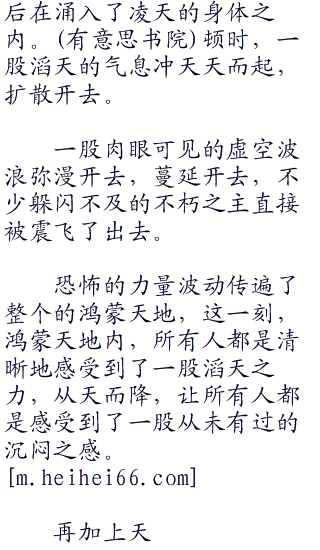 后在涌入了凌天的身体之
内。(有意思书院)顿时，一
股滔天的气息冲天天而起，
扩散开去。
一股肉眼可见的虚空波
浪弥漫开去，蔓延开去，不
少躲闪不及的不朽之主直接
被震飞了出去。
恐怖的力量波动传遍了
整个的鸿蒙天地，这一刻，
鸿蒙天地内，所有人都是清
晰地感受到了一股滔天之
力，从天而降，让所有人都
是感受到了一股从未有过的
沉闷之感。
[m.heihei66.com]
再加上天